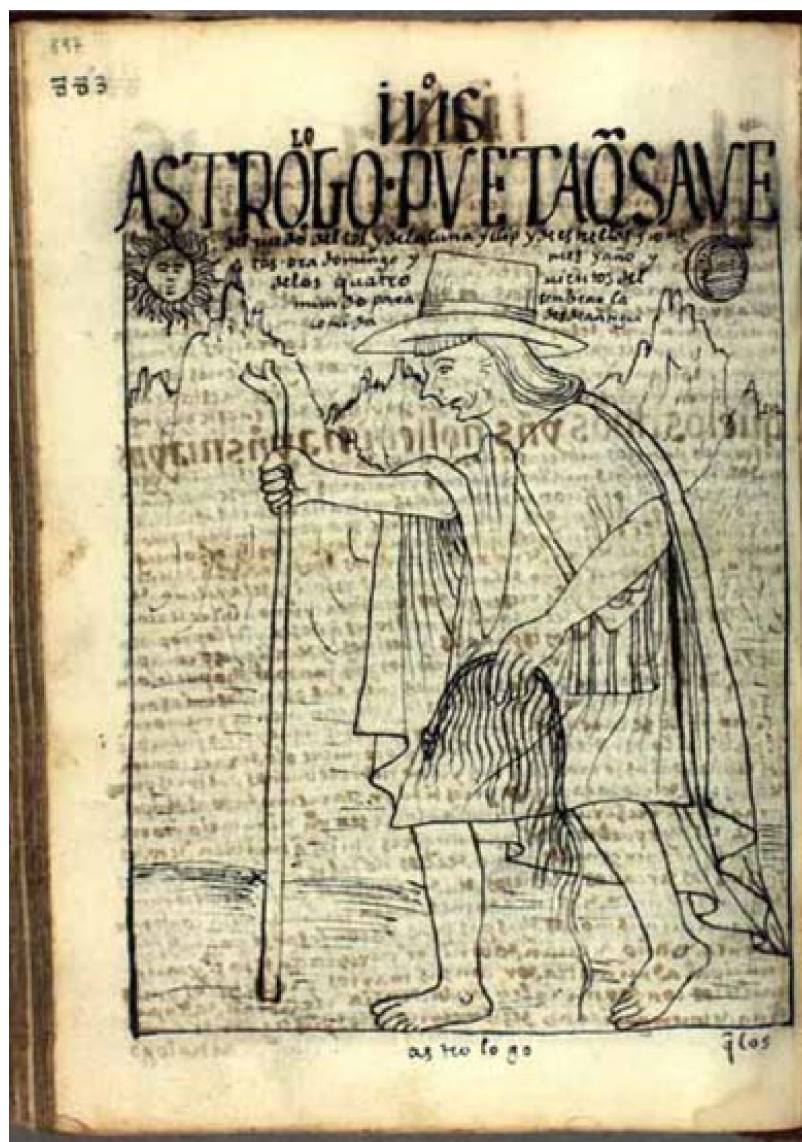 897
883
LO
ASTROGO·PVETAQ̃SAVE
del ruedo del sol y dela luna y clip y destrellas y
tas·ora domingo y mes y ano y
delos quatro uientos del
mundo para sembrar la
comida
astrologo
q̃ los